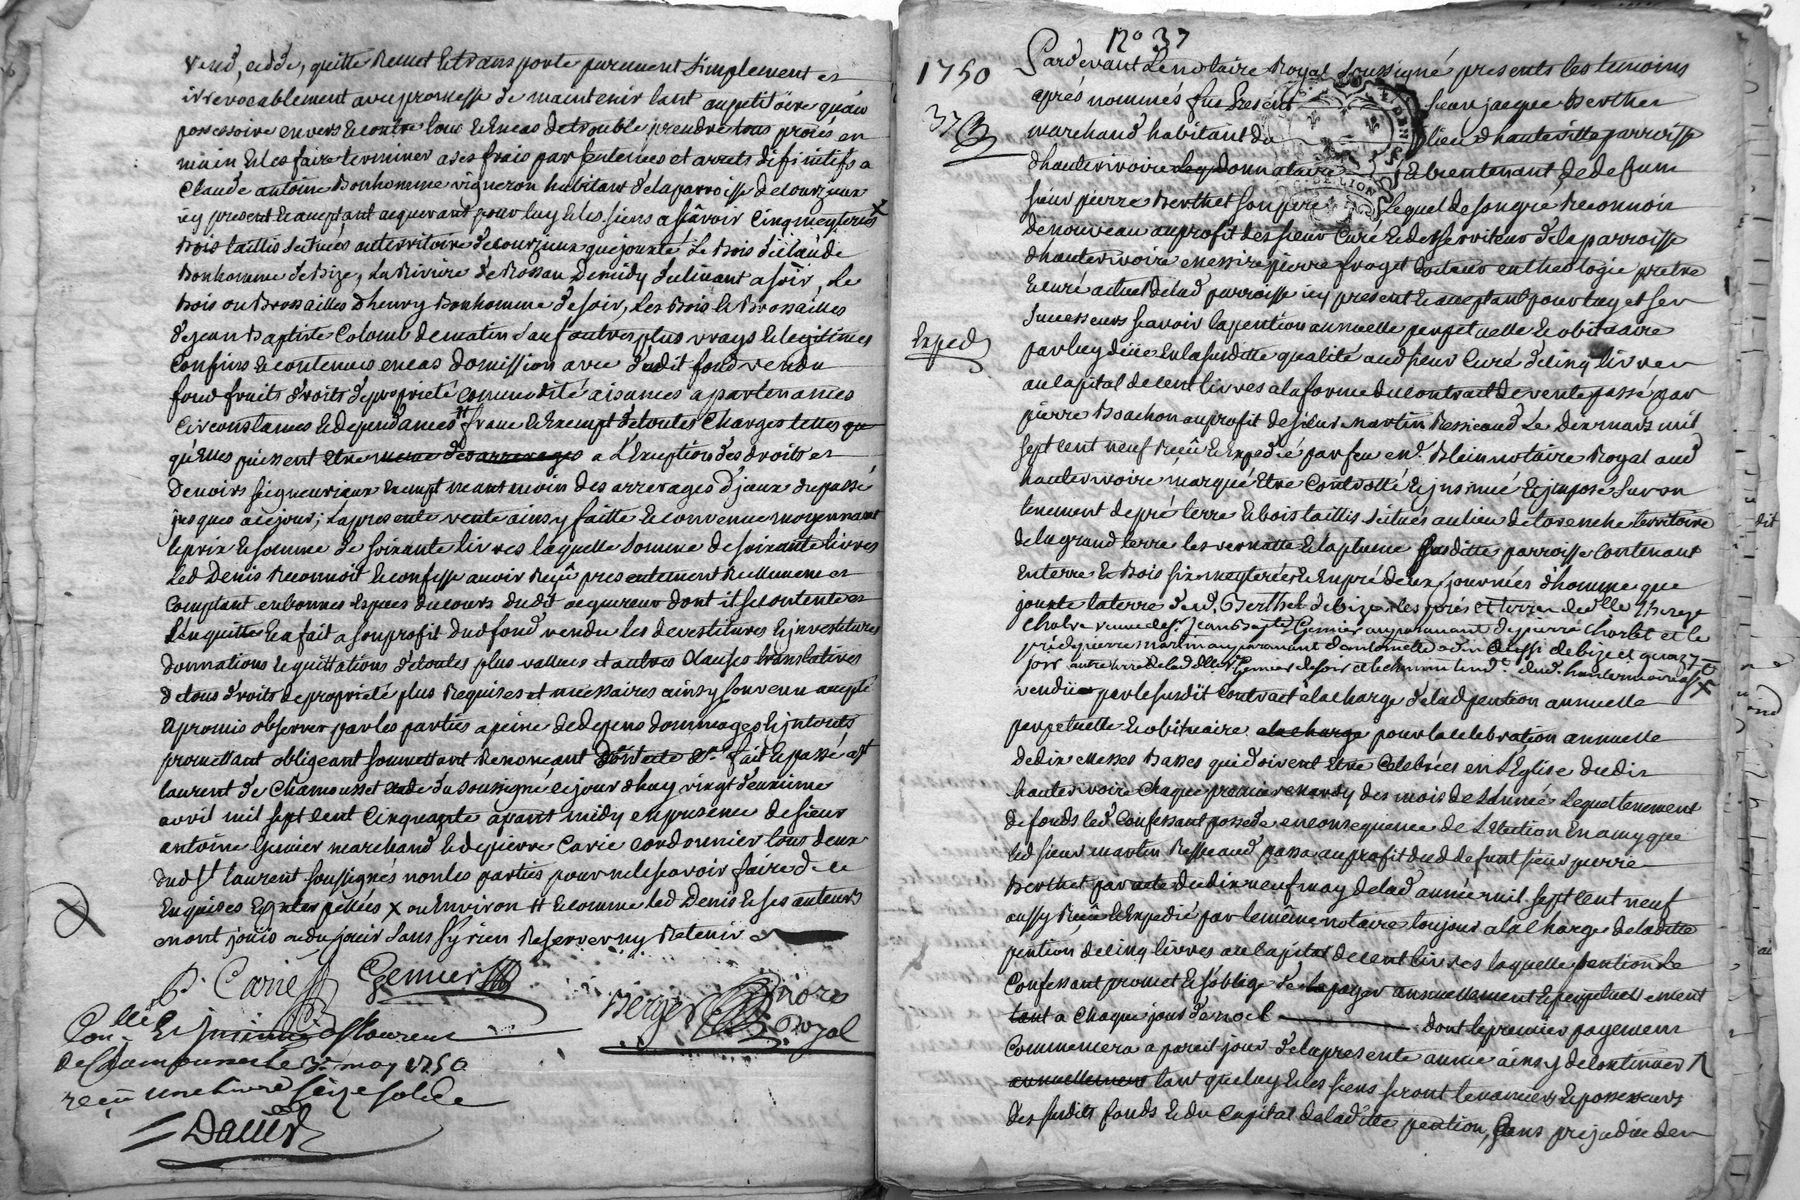 vend, cedde, quitte Remet & transporte purement simplement et
irrevocablement avec promesse de maintenir tant au petitoire quau
possessoire envers & contre tous & en cas de trouble prendre tous procés en
main & les faire terminer a ses frais par sentences et arrets difinitifs a
Claude antoine Bonhomme vigneron habitant de la parroisse de courzieux
icy present & acceptant acquerant pour luy & les siens a sçâvoir Cinq meyterées X
Bois taillis scitués au territoire de courzieux que jouxte Le Bois de Claude
Bonhomme de Bize, La Riviere de Rossan de midy declinant a soir, Le
Bois ou Brossailles d'henry Bonhomme de soir, Les Bois & Brossailles
de jean Baptiste Colomb de matin sauf autres plus vrays & legitimes
Confins & contenues en cas domission avec dudit fond vendu
fond fruits droits de proprieté commodité aisances apartenances
Circonstances & dependances # franc & Exempt de toutes Charges telles qu
qu'elles puissent Etre meme des arrerages a L'Exception des droits et
devoirs seigneuriaux Exempt neantmoin des arrerages d'jceux du passé
jusques a ce jour; La presente vente ainsy faitte & convenue moyennant
le prix & somme de soixante livres laquelle somme de soixante livres
Led Denis Reconnoit & confesse avoir Reçû presentement Reellement et
Comptant en bonnes Especes du cours dudit acquereur dont il se contente et
L'en quitte & a fait a son profit dud fond vendu les devestitures & jnvestitures
donnations & quittations de toutes plus vallues et autres Clauses translatives
de tous droits de proprieté plus Requises et necessaires ainsy convenu accepté
& promis observer par les parties a peine de depens dommages & jnterets
promettant obligeant soumettant Renonceant fait & passé a St
laurent de Chamousset du soussigné ce jourdhuy vingt deuxieme
avril mil sept cent Cinquante apant midy en presence de sieur
antoine Genier marchand & de pierre Carie cordonnier tous deux
dud St laurent soussignés non les parties pour ne le sçavoir faire de ce
Enquises & jnterpellées X ou Environ # & comme led Denis & ses auteurs
en ont joüis ou du joüir sans sy rien Reserver ny Retenir
P. Carie Genier
Berger Not. Royal
Conllé & jnsinué a St Laurent
de Chamousset le 3e may 1750
reçu une livre seize sols
David
No 37
1750
37
Exped
Pardevant Le notaire Royal soussigné presents les temoins
aprés nommés fut Present sieur jean jacque Berthet
marchand habitant du lieu d'hauteville parroisse
d'hauterivoire donnataire & bientenant de defunt
sieur pierre Berthet son pere Lequel de son gre Reconnoit
de nouveau au profit des sieur Curé & desserviteur de la parroisse
d'hauterivoire messire pierre froget docteur en theologie pretre
& curé actuel de lad parroisse icy present & acceptant pour luy et ses
successeurs sçavoir la pention annuelle perpetuelle & obituaire
par luy düe en la susditte qualité aud sieur Curé de cinq livres
au capital de cent livres a la forme du contract de vente passé par
pierre Boachon au profit de sieur martin Ressicaud Le dix mars mil
sept cent neuf Reçû & Expedié par feu me Blein notaire Royal aud
hauterivoire marqué Etre Controllé & jnsinué & jmposé sur un
tenement de pré terre & bois taillis scitués au lieu de territoire
de la grand terre les vernatte & la susditte parroisse contenant
En terre & Bois six meyterées & En pré deux journées d'homme que
jouxte la terre de Berthet de bize les prés et terre de dlle therese
veuve de sr jean Genier de pierre et le
pré de pierre martin de bize et quasy
soir autre terre de lad dlle Genier de soir et le chemin tendt dud hauterivoire
vendüe par le susdit contract a la charge de lad pention annuelle
perpetuelle & obituaire a la charge pour la celebration annuelle
de dix messes Basses qui doivent Etre Celebrées en L'Eglise dudit
hauterivoire chaque premier mardy des mois de L'année Lequel tenement
de fonds led Confessant possede en consequence de L'Election En amy que
led sieur martin Ressicaud passa au profit dud defunt sieur pierre
Berthet par acte du dix neuf may de lad année mil sept cent neuf
aussy Reçû & Expedié par le même notaire toujour a la charge de laditte
pention de cinq livres au capital de cent livres laquelle pention Le
Confessant promet & s'oblige de la payer annuellement & perpetuellement
tant a Chaque jour de noel dont le premier payement
Commencera a pareil jour de la presente année ainsy de continuer
annuellement tant que luy & les siens seront tenanciers & possesseurs
des susdits fonds & du Capital de laditte pention, sans prejudice des